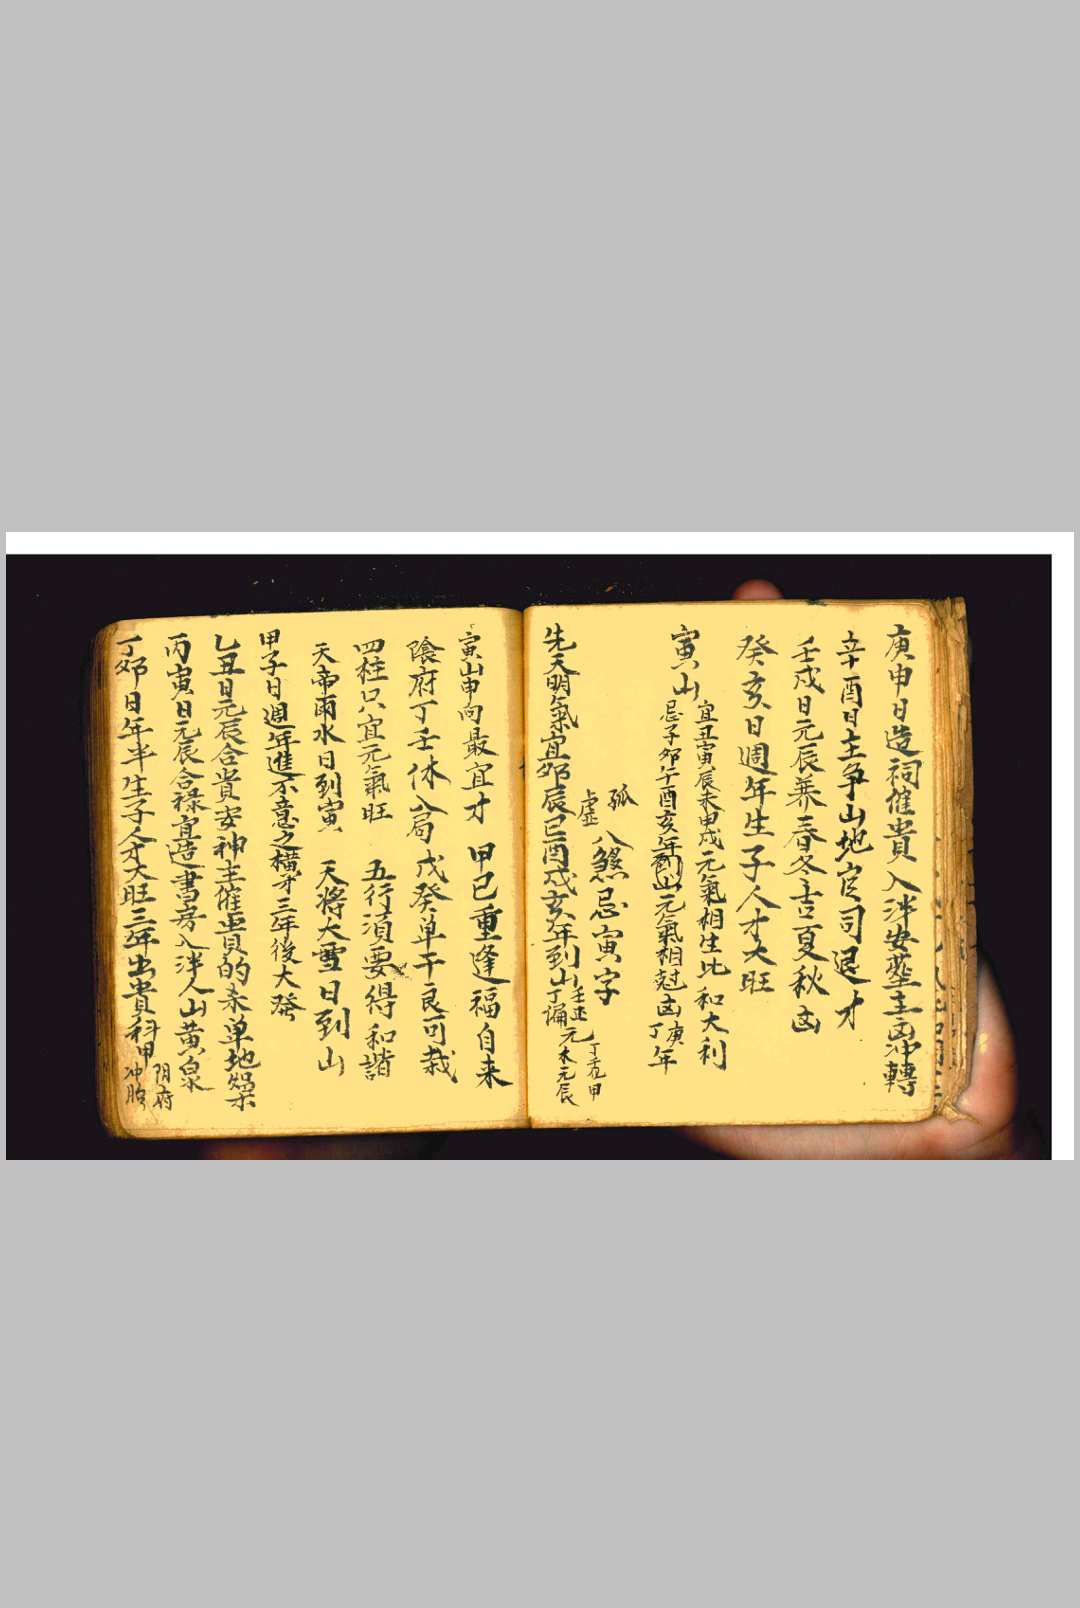 庚申日造祠催貴入泮安葬主凶冲轉
辛酉日主争山地官司退才
壬戌日元辰養春冬吉夏秋凶
癸亥日週年生子人才大旺
寅山
宜丑寅辰未申戌元氣相生比和大利
忌子夘午酉亥年到山元氣相尅凶庚丁年
孤虚八煞忌寅字
先天明氣宜夘辰巳酉戌亥年到山
寅山申向最宜才 甲己重逢福自来
陰府丁壬休入局 戊癸单干良可栽
四柱只宜元氣旺 五行須要得和諧
天帝雨水日到寅 天將大雪日到山
甲子日週年進不意之横才三年後大發
乙丑日元辰合貴安神主催貴的杀单地
丙寅日元辰合禄宜造書房入泮人山黄泉
丁夘日年半生子人才大旺三年出貴科甲
阴府
冲胎